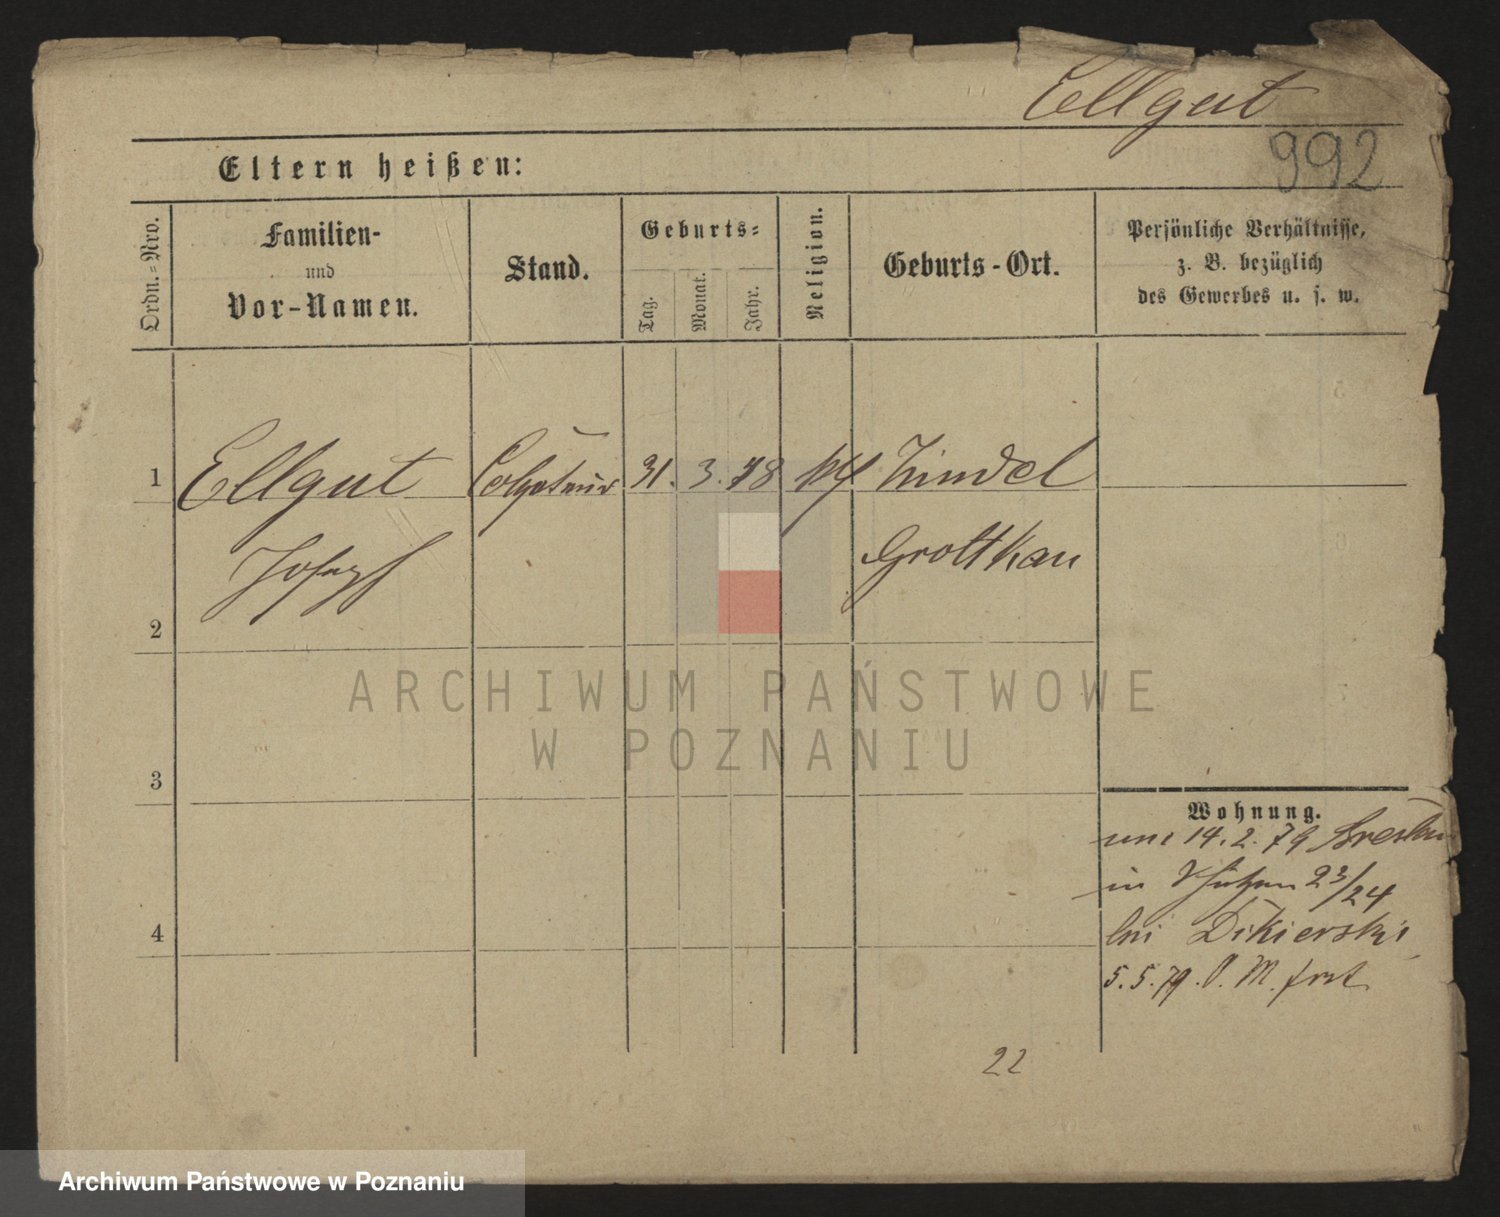 Ellgut
992
Eltern heißen:
Ordn.=Nro.
Familien-
und
Vor-Namen.
Stand.
Geburts=
Tag.
Monat.
Jahr.
Religion.
Geburts-Ort.
Persönliche Verhältnisse,
z. B. bezüglich
des Gewerbes u. s. w.
1 Ellgut 31. 3. 78 Zindel
Joseph Grottkau
2
3
4
Wohnung.
14. 2. 79 Breslau
in 23/24
bei Dikierski
5. 5. 79. fort
22
ARCHIWUM PAŃSTWOWE
W POZNANIU
Archiwum Państwowe w Poznaniu